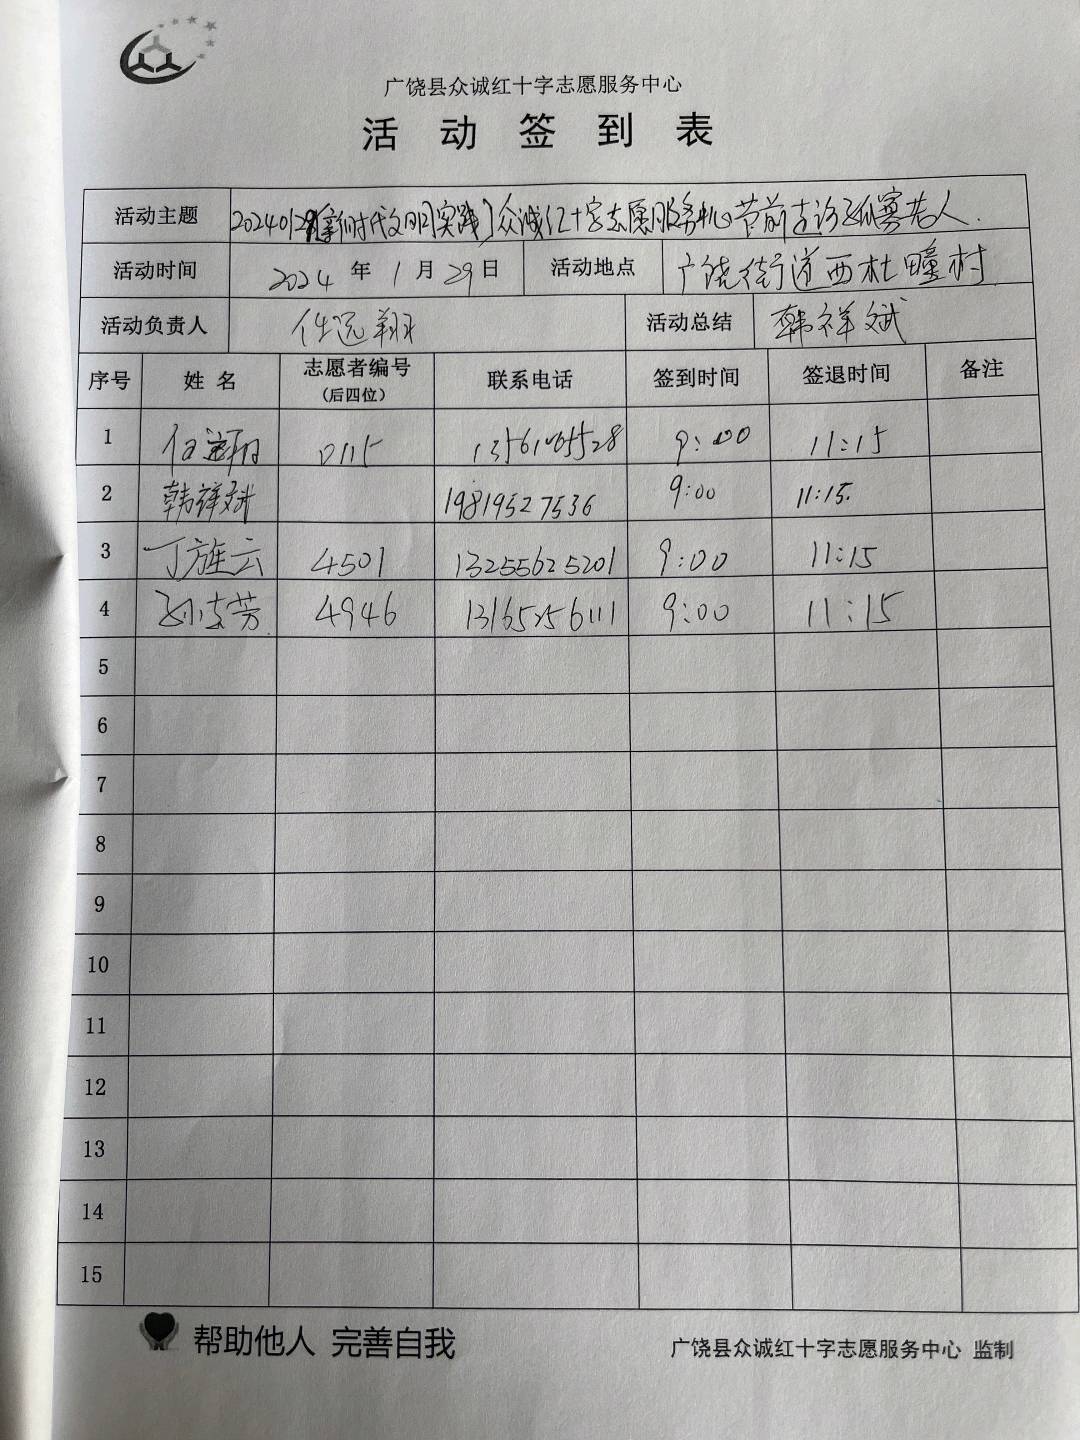 广饶县众诚红十字志愿服务中心
活动签到表
活动主题 20240129【新时代文明实践】众诚红十字志愿服务中心节前走访孤寡老人.
活动时间 2024年1月29日 活动地点 广饶街道西杜疃村
活动负责人 任远翔 活动总结 韩祥斌
序号 姓名 志愿者编号(后四位) 联系电话 签到时间 签退时间 备注
1 任远翔 0115 9:00 11:15
2 韩祥斌 19819527536 9:00 11:15.
3 丁旌云 4501 13255625201 9:00 11:15
4 4946 13165256111 9:00 11:15
5
6
7
8
9
10
11
12
13
14
15
帮助他人 完善自我
广饶县众诚红十字志愿服务中心 监制